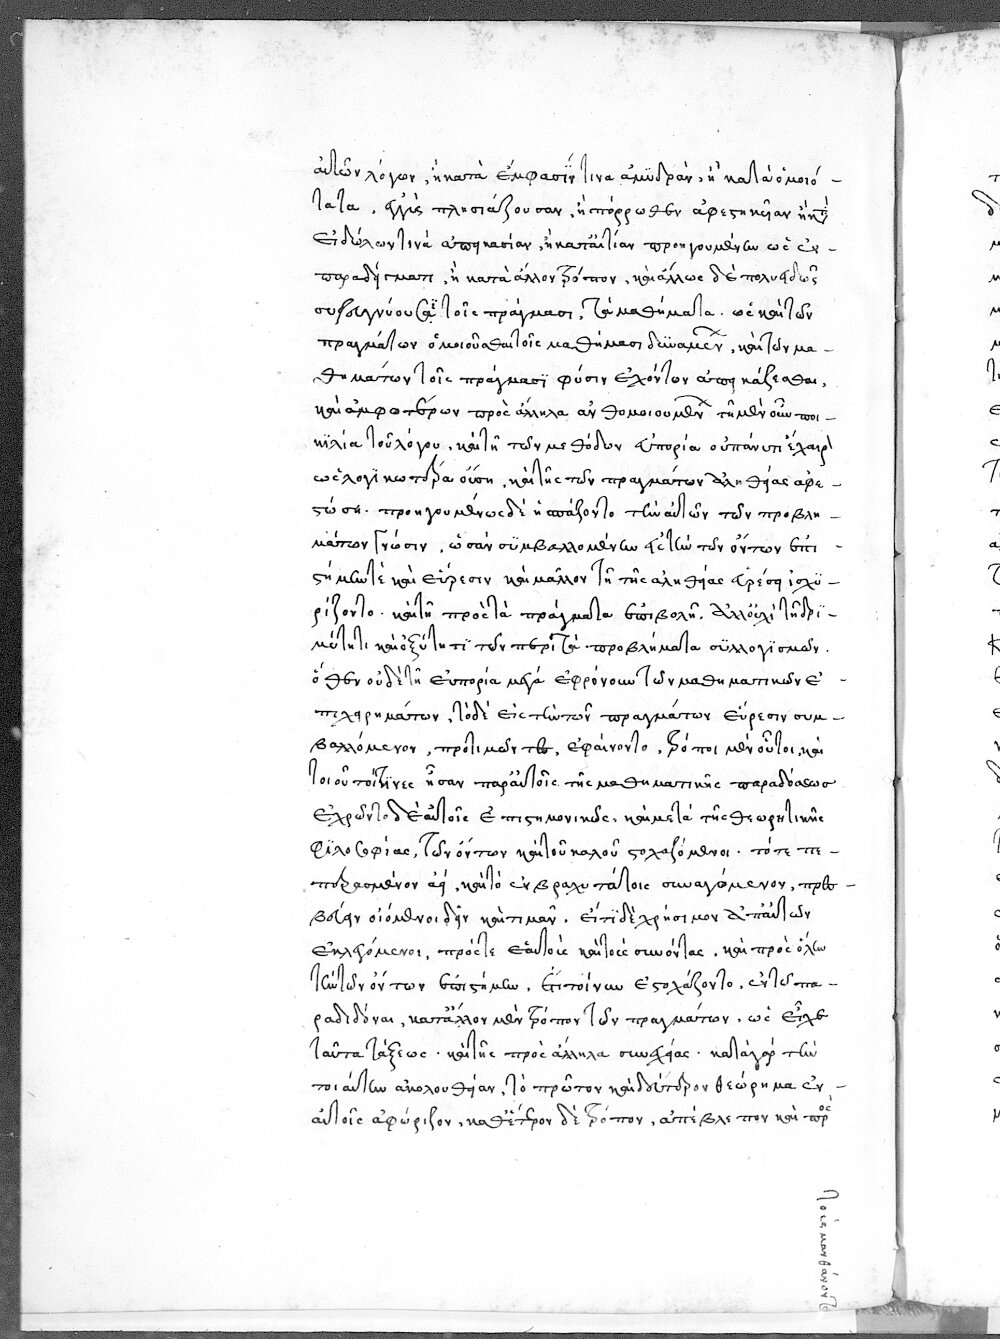 αὐτῶν λόγων, ἢ κατὰ ἔμφασίν τινα ἀμυδρὰν, ἢ κατὰ ὁμοιό-
τητα, ἐγγὺς πλησιάζουσαν, ἢ πόρρωθεν ἀφεστηκυῖαν ἢ κατ'
εἰδώλων τινὰ ἀπεικασίαν, ἢ κατ' αἰτίαν προηγουμένην ὡς ἐν -
παραδείγματι, ἢ κατὰ ἄλλον τρόπον, καὶ ἄλλως δὲ πολυειδῶς
συζευγνύουσα τοῖς πράγμασι, τὰ μαθήματα. ὡς καὶ τῶν
πραγμάτων ὁμοιοῦσθαι τοῖς μαθήμασι δυναμένων, καὶ τῶν μα-
θημάτων τοῖς πράγμασι φύσιν ἐχόντων ἀπεικάζεσθαι,
καὶ ἀμφοτέρων πρὸς ἄλληλα ἀνθομοιουμένων τῇ μὲν οὖν ποι-
κιλία τοῦ λόγου, καὶ τῇ τῶν μεθόδων εὐπορία οὐ πάνυ τι ἔχαιρον
ὡς λογικωτέρα οὔση, καὶ τῆς τῶν πραγμάτων ἀληθείας ἀφε-
στώση. προηγουμένως δὲ ἠσπάζοντο τὴν αὐτῶν τῶν προβλη-
μάτων γνῶσιν, ὡσὰν συμβαλλομένην εἰς τὴν τῶν ὄντων ἐπι-
στήμην τὲ καὶ εὕρεσιν καὶ μᾶλλον τῇ τῆς ἀληθείας εὑρέσει ἰσχυ-
ρίζοντο. καὶ τῇ πρὸς τὰ πράγματα ἐπιβολῇ. ἀλλ' οὐχὶ τῇ δρι-
μύτητι καὶ ὀξύτητι τῶν περὶ τὰ προβλήματα συλλογισμῶν.
ὅθεν οὐδὲ τῇ εὐπορία μέγα ἐφρόνουν τῶν μαθηματικῶν ἐ-
πιχειρημάτων, τὸ δὲ εἰς τὴν τῶν πραγμάτων εὕρεσιν συμ-
βαλλόμενον, προτιμῶντες, ἐφαίνοντο, τρόποι μὲν οὗτοι, καὶ
τοιοῦτοί τινες ἦσαν παρ' αὐτοῖς τῆς μαθηματικῆς παραδόσεως
ἐχρῶντο δὲ αὐτοῖς ἐπιστημονικῶς, καὶ μετὰ τῆς θεωρητικῆς
φιλοσοφίας, τῶν ὄντων καὶ τοῦ καλοῦ στοχαζόμενοι. τότε πε-
περασμένον ἀεί, καὶ τὸ ἐν βραχυτάτοις συναγόμενον, πρεσ-
βεύειν οἰόμενοι δεῖν καὶ τιμᾶν. ἔτι δὲ χρήσιμον ἀπ' αὐτῶν
ἐκλεγόμενοι, πρός τε ἑαυτοὺς καὶ τοὺς συνόντας, καὶ πρὸς ὅλην
τὴν τῶν ὄντων ἐπιστήμην, ἔτι τοίνυν ἐστοχάζοντο, ἐν τῶ πα-
ραδιδόναι, κατ' ἄλλον μὲν τρόπον τῶν πραγμάτων, ὡς εἶχε
ταῦτα τάξεως. καὶ τῆς πρὸς ἄλληλα συνεχείας. κατὰ γὰρ τὴν
τοιαύτην ἀκολουθίαν, τὸ πρῶτον καὶ δεύτερον θεώρημα ἐν -
αὐτοῖς ἀφώριζον, καθ' ἕτερον δὲ τρόπον, ἀπέβλεπον καὶ πρὸς
τοὺς μανθάνοντας